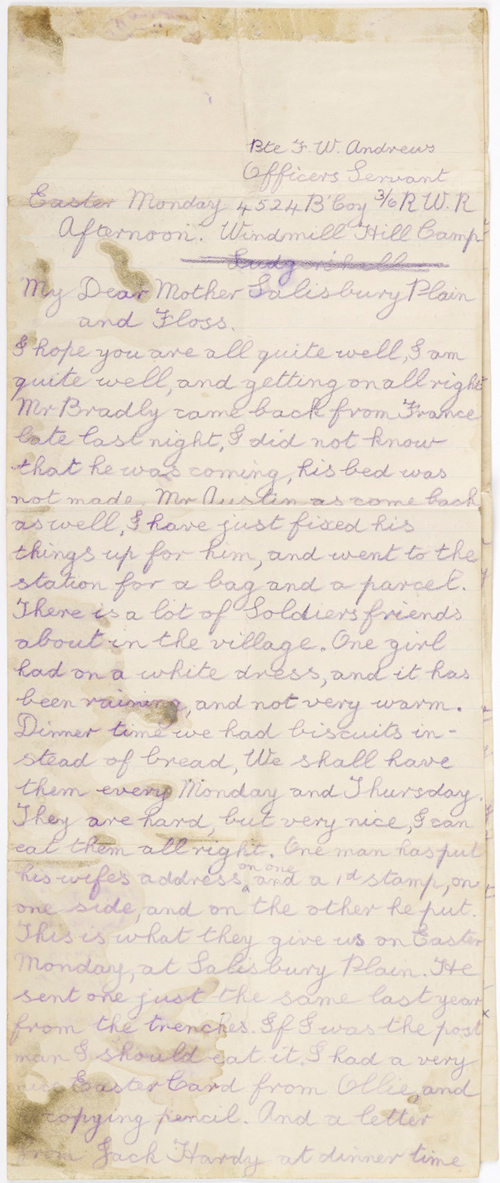 Pte F. W. Andrews
Officers Servant
Easter Monday 4524 B'Coy 3/6 R.W.R
Afternoon. Windmill Hill Camp
Ludgershall
My Dear Mother Salisbury Plain
and Floss.
I hope you are all quite well, I am
quite well, and getting on all right
Mr Bradly came back from France
late last night, I did not know
that he was coming, his bed was
not made. Mr Austin as come back
as well, I have just fixed his
things up for him, and went to the
station for a bag and a parcel.
There is a lot of Soldiers friends
about in the village. One girl
had on a white dress, and it has
been raining, and not very warm.
Dinner time we had biscuits in-
stead of bread, We shall have
them every Monday and Thursday.
They are hard, but very nice, I can
eat them all right. One man has put
his wifes address, on one and a 1d stamp, on
one side, and on the other he put.
This is what they give us on Easter
Monday, at Salisbury Plain. He
sent one just the same last year
from the trenches. If I was the post
man I should eat it. I had a very
nice Easter Card from Ollie, and
copying pencil. And a letter
from Jack Hardy at dinner time